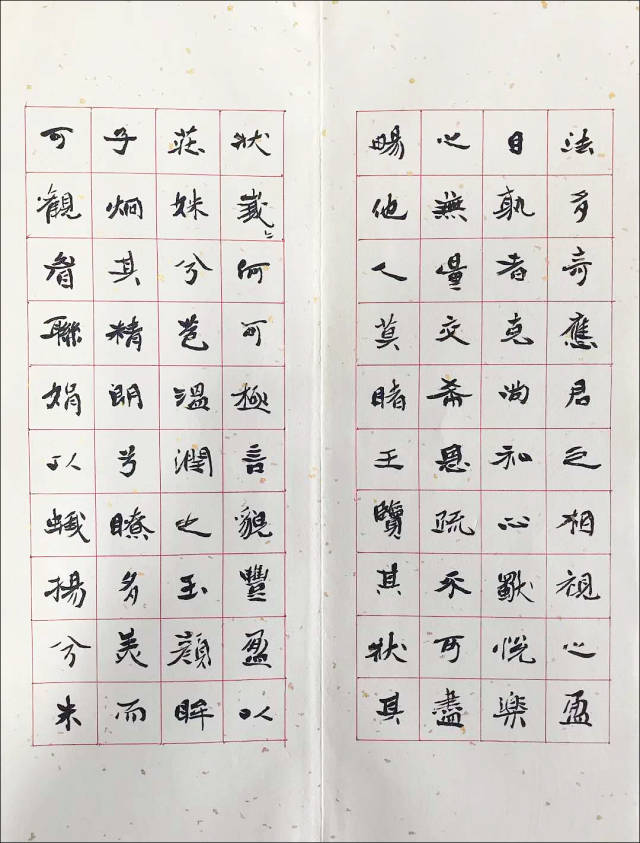 法多奇應君之相視之盈
目孰者克尚私心獨悅樂
之無量交希恩疏不可盡
暢他人莫睹王覽其狀其
狀峩〻何可極言貌豐盈以
莊姝兮苞溫潤之玉顏眸
子炯其精朗兮瞭多美而
可觀眉聯娟以蛾揚兮朱